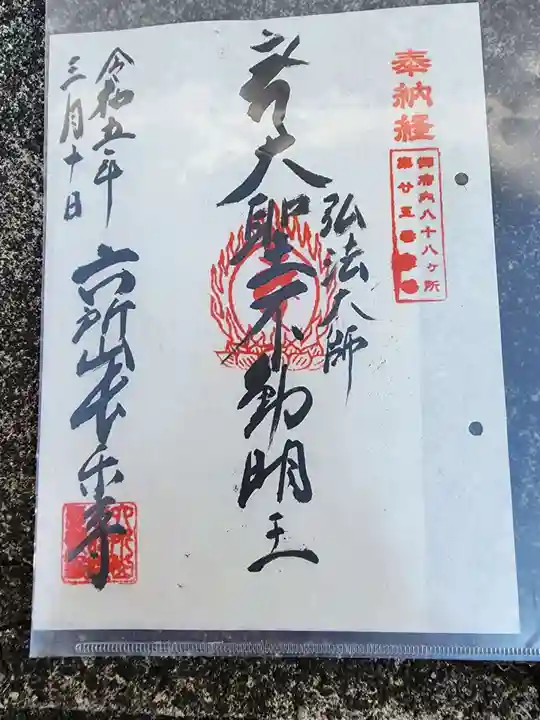 奉納経
御府内八十八ヶ所
第廿五番霊場
弘法大師
大聖不動明王
令和五年
三月十日
六所山長楽寺